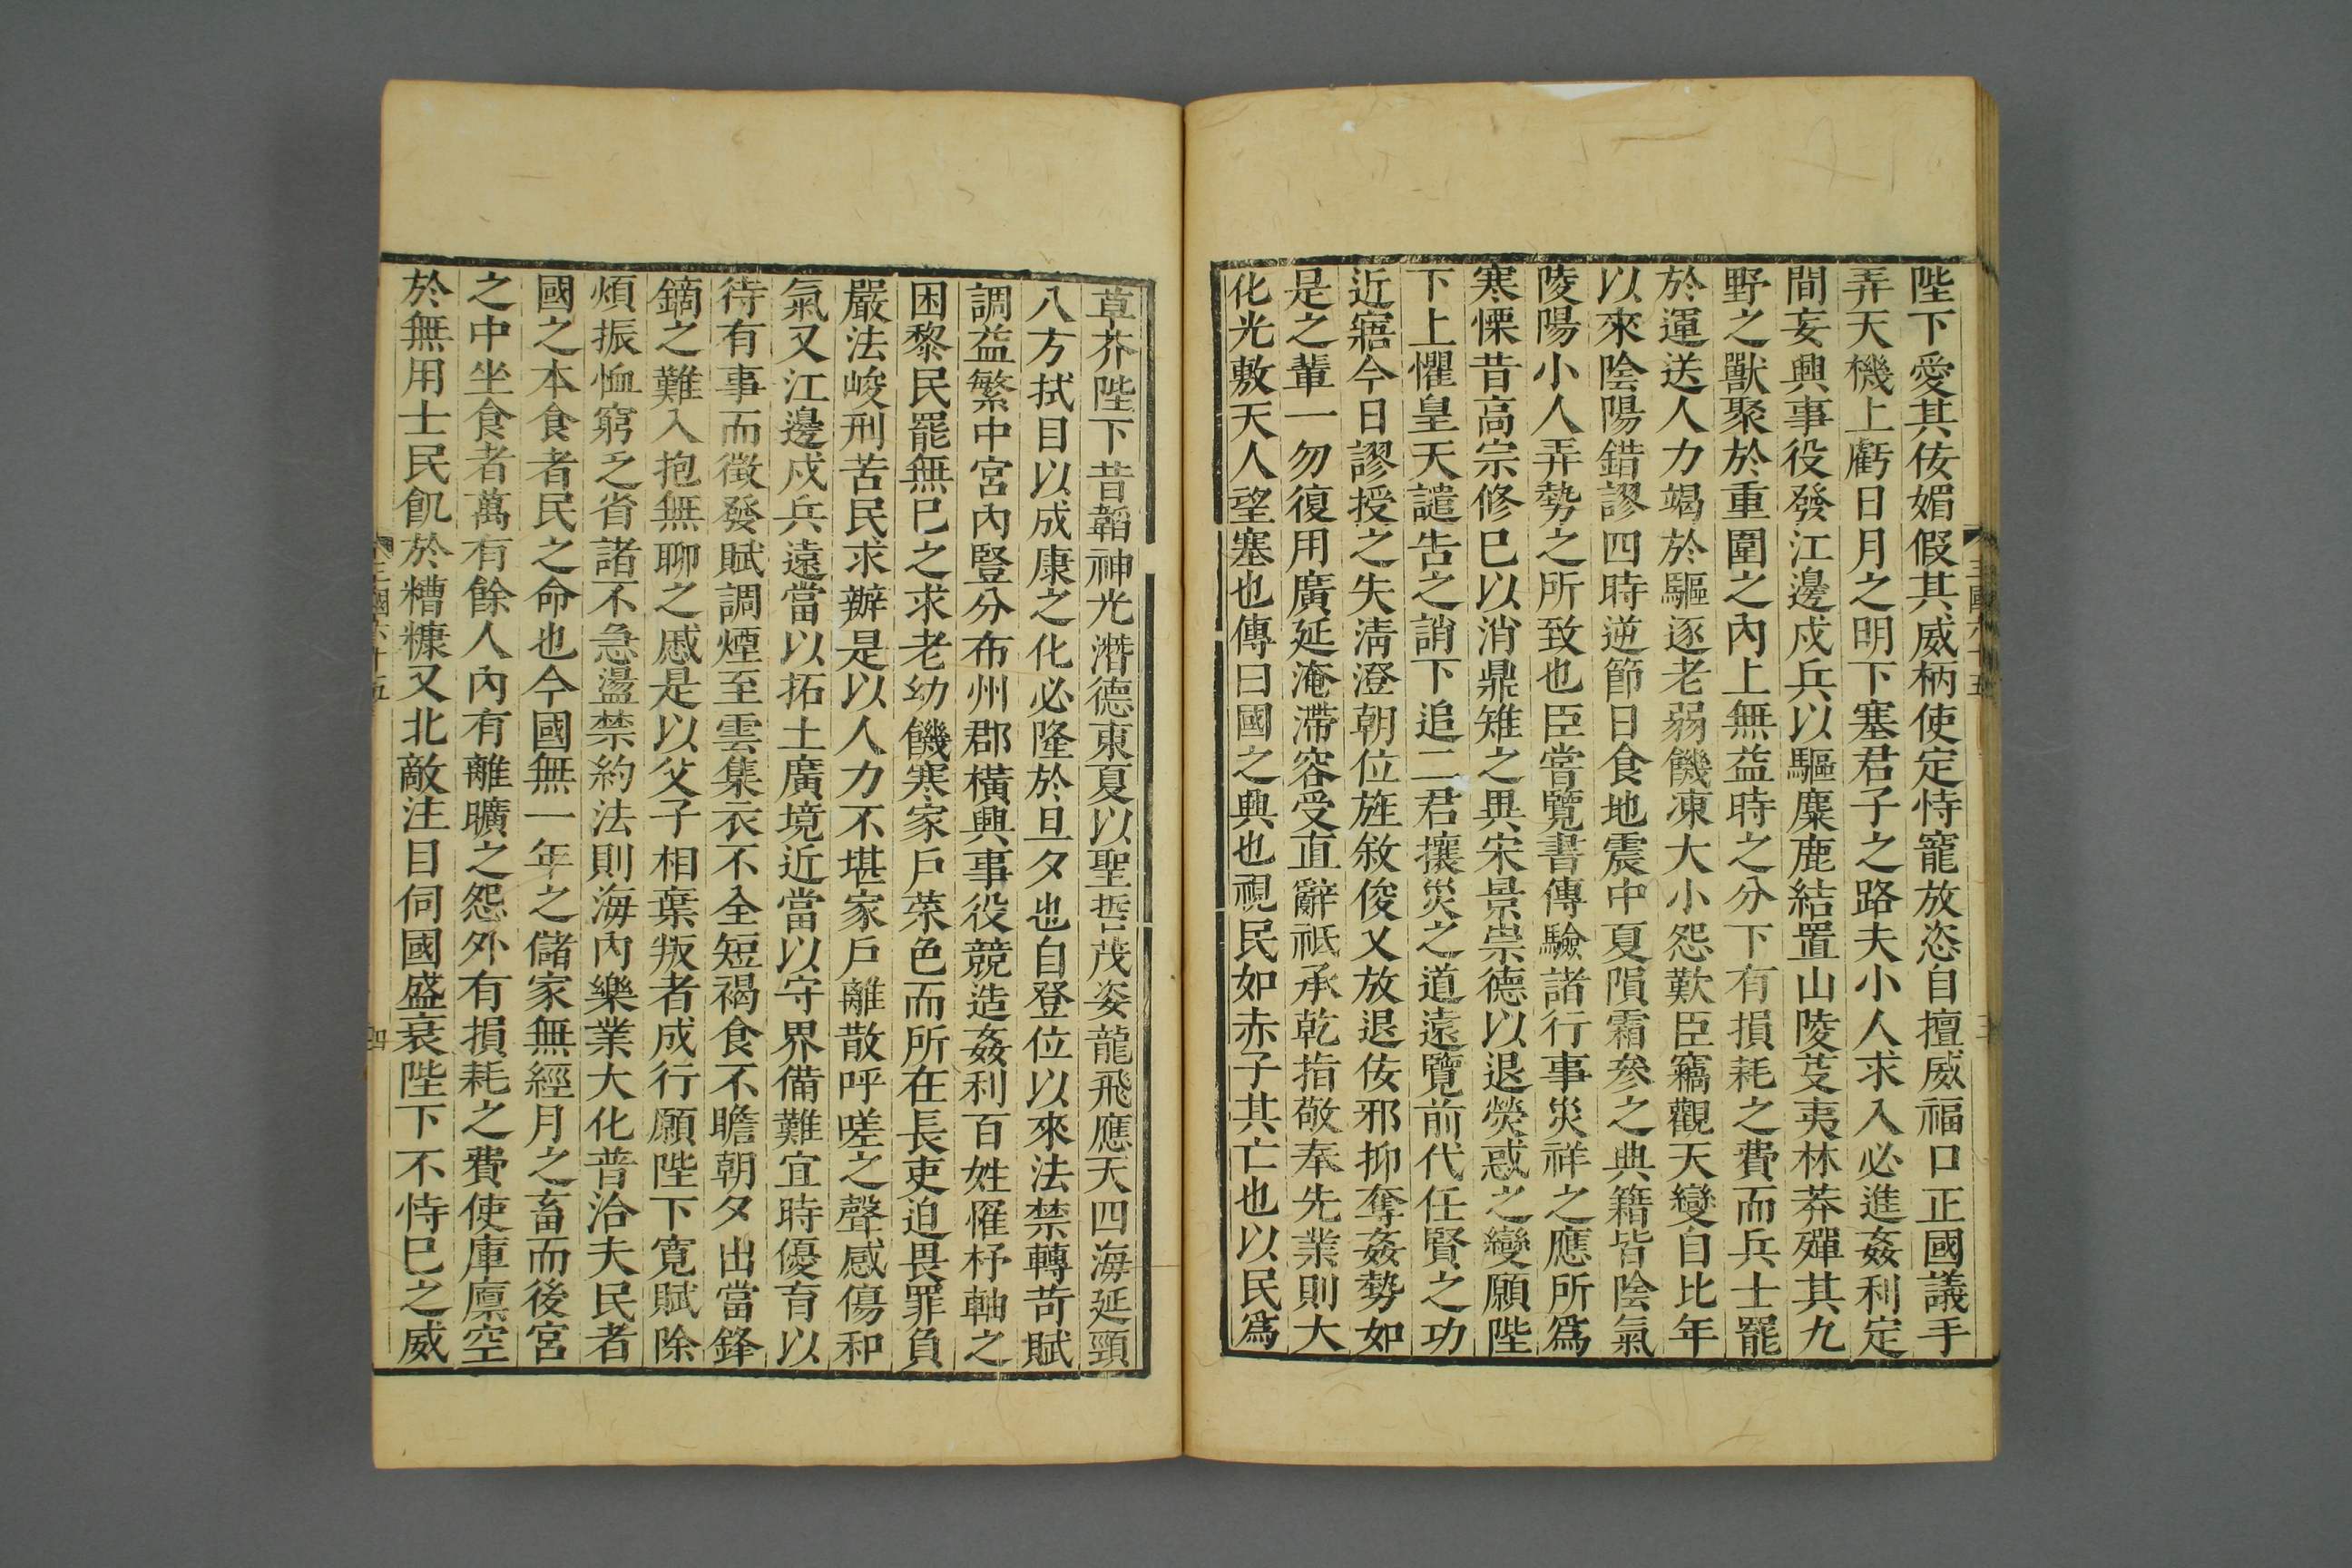 陛下愛其佞媚假其威柄使定恃寵放恣自擅威福口正國議手
弄天機上虧日月之明下塞君子之路夫小人求入必進姦利定
間妄興事役發江邊戍兵以驅麋鹿結罝山陵芟夷林莽殫其九
野之獸聚於重圍之內上無益時之分下有損耗之費而兵士罷
於運送人力竭於驅逐老弱饑凍大小怨歎臣竊觀天變自比年
以來陰陽錯謬四時逆節日食地震中夏隕霜參之典籍皆陰氣
陵陽小人弄勢之所致也臣嘗覽書傳驗諸行事災祥之應所爲
寒慄昔高宗修已以消鼎雉之異宋景崇德以退熒惑之變願陛
下上懼皇天譴告之誚下追二君攘災之道遠覽前代任賢之功
近寤今日謬授之失淸澄朝位旌敘俊乂放退佞邪抑奪姦勢如
是之輩一勿復用廣延淹滯容受直辭祗承乾指敬奉先業則大
化光敷天人望塞也傳曰國之興也視民如赤子其亡也以民爲
三國六十五
三
草芥陛下昔韜神光潛德東夏以聖哲茂姿龍飛應天四海延頸
八方拭目以成康之化必隆於旦夕也自登位以來法禁轉苛賦
調益繁中宮內豎分布州郡橫興事役競造姦利百姓罹杼軸之
困黎民罷無已之求老幼饑寒家戶菜色而所在長吏迫畏罪負
嚴法峻刑苦民求辦是以人力不堪家戶離散呼嗟之聲感傷和
氣又江邊戍兵遠當以拓土廣境近當以守界備難宜時優育以
待有事而徵發賦調煙至雲集衣不全短褐食不贍朝夕出當鋒
鏑之難入抱無聊之慼是以父子相棄叛者成行願陛下寬賦除
煩振恤窮乏省諸不急盪禁約法則海內樂業大化普洽夫民者
國之本食者民之命也今國無一年之儲家無經月之畜而後宮
之中坐食者萬有餘人內有離曠之怨外有損耗之費使庫廩空
於無用士民飢於糟糠又北敵注目伺國盛衰陛下不恃已之威
三國六十五
四